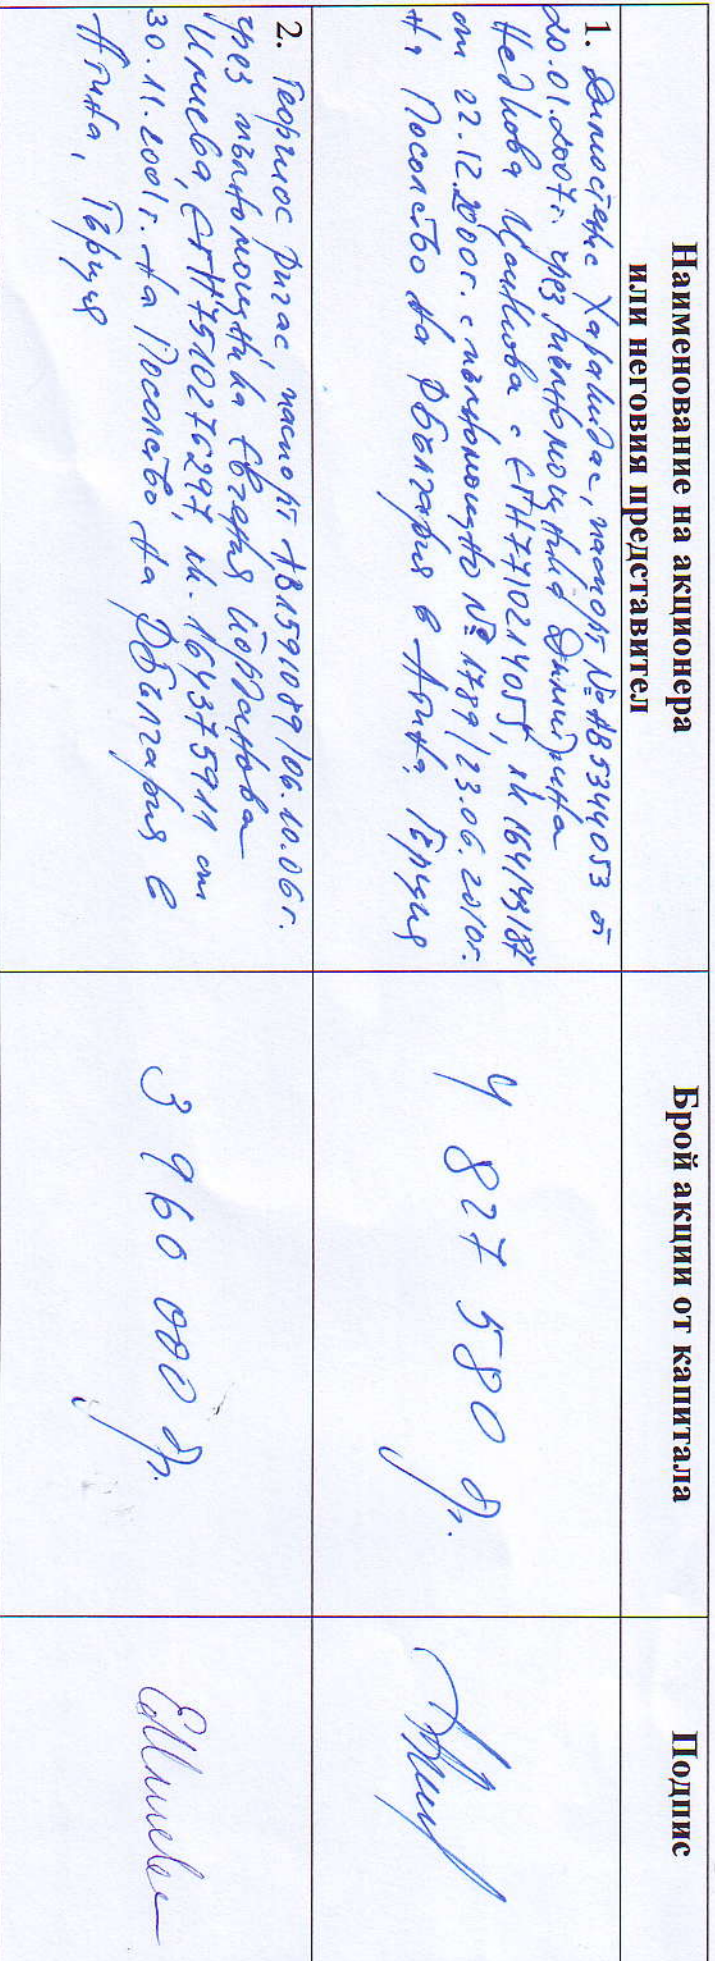 Наименование на акционера
или неговия представител
Брой акции от капитала
Подпис
1. Димостенис Харамидас, паспорт № АВ5344053 от
20.01.2007г. чрез пълномощника Димитрина
Недкова Цолкова с ЕГН 7710214055, лк 164143187
от 22.12.2000г. с пълномощно № 1789/23.06.2010г.
на Посолство на РБългария в Атина, Гърция
4 827 580 бр.
2. Георгиос Ригас, паспорт АВ1591089/06.10.06г.
чрез пълномощника Евгения Йорданова
Илиева, ЕГН 7510276297, лк. 164375911 от
30.11.2001г. на Посолство на РБългария в
Атина, Гърция
3 960 000 бр.